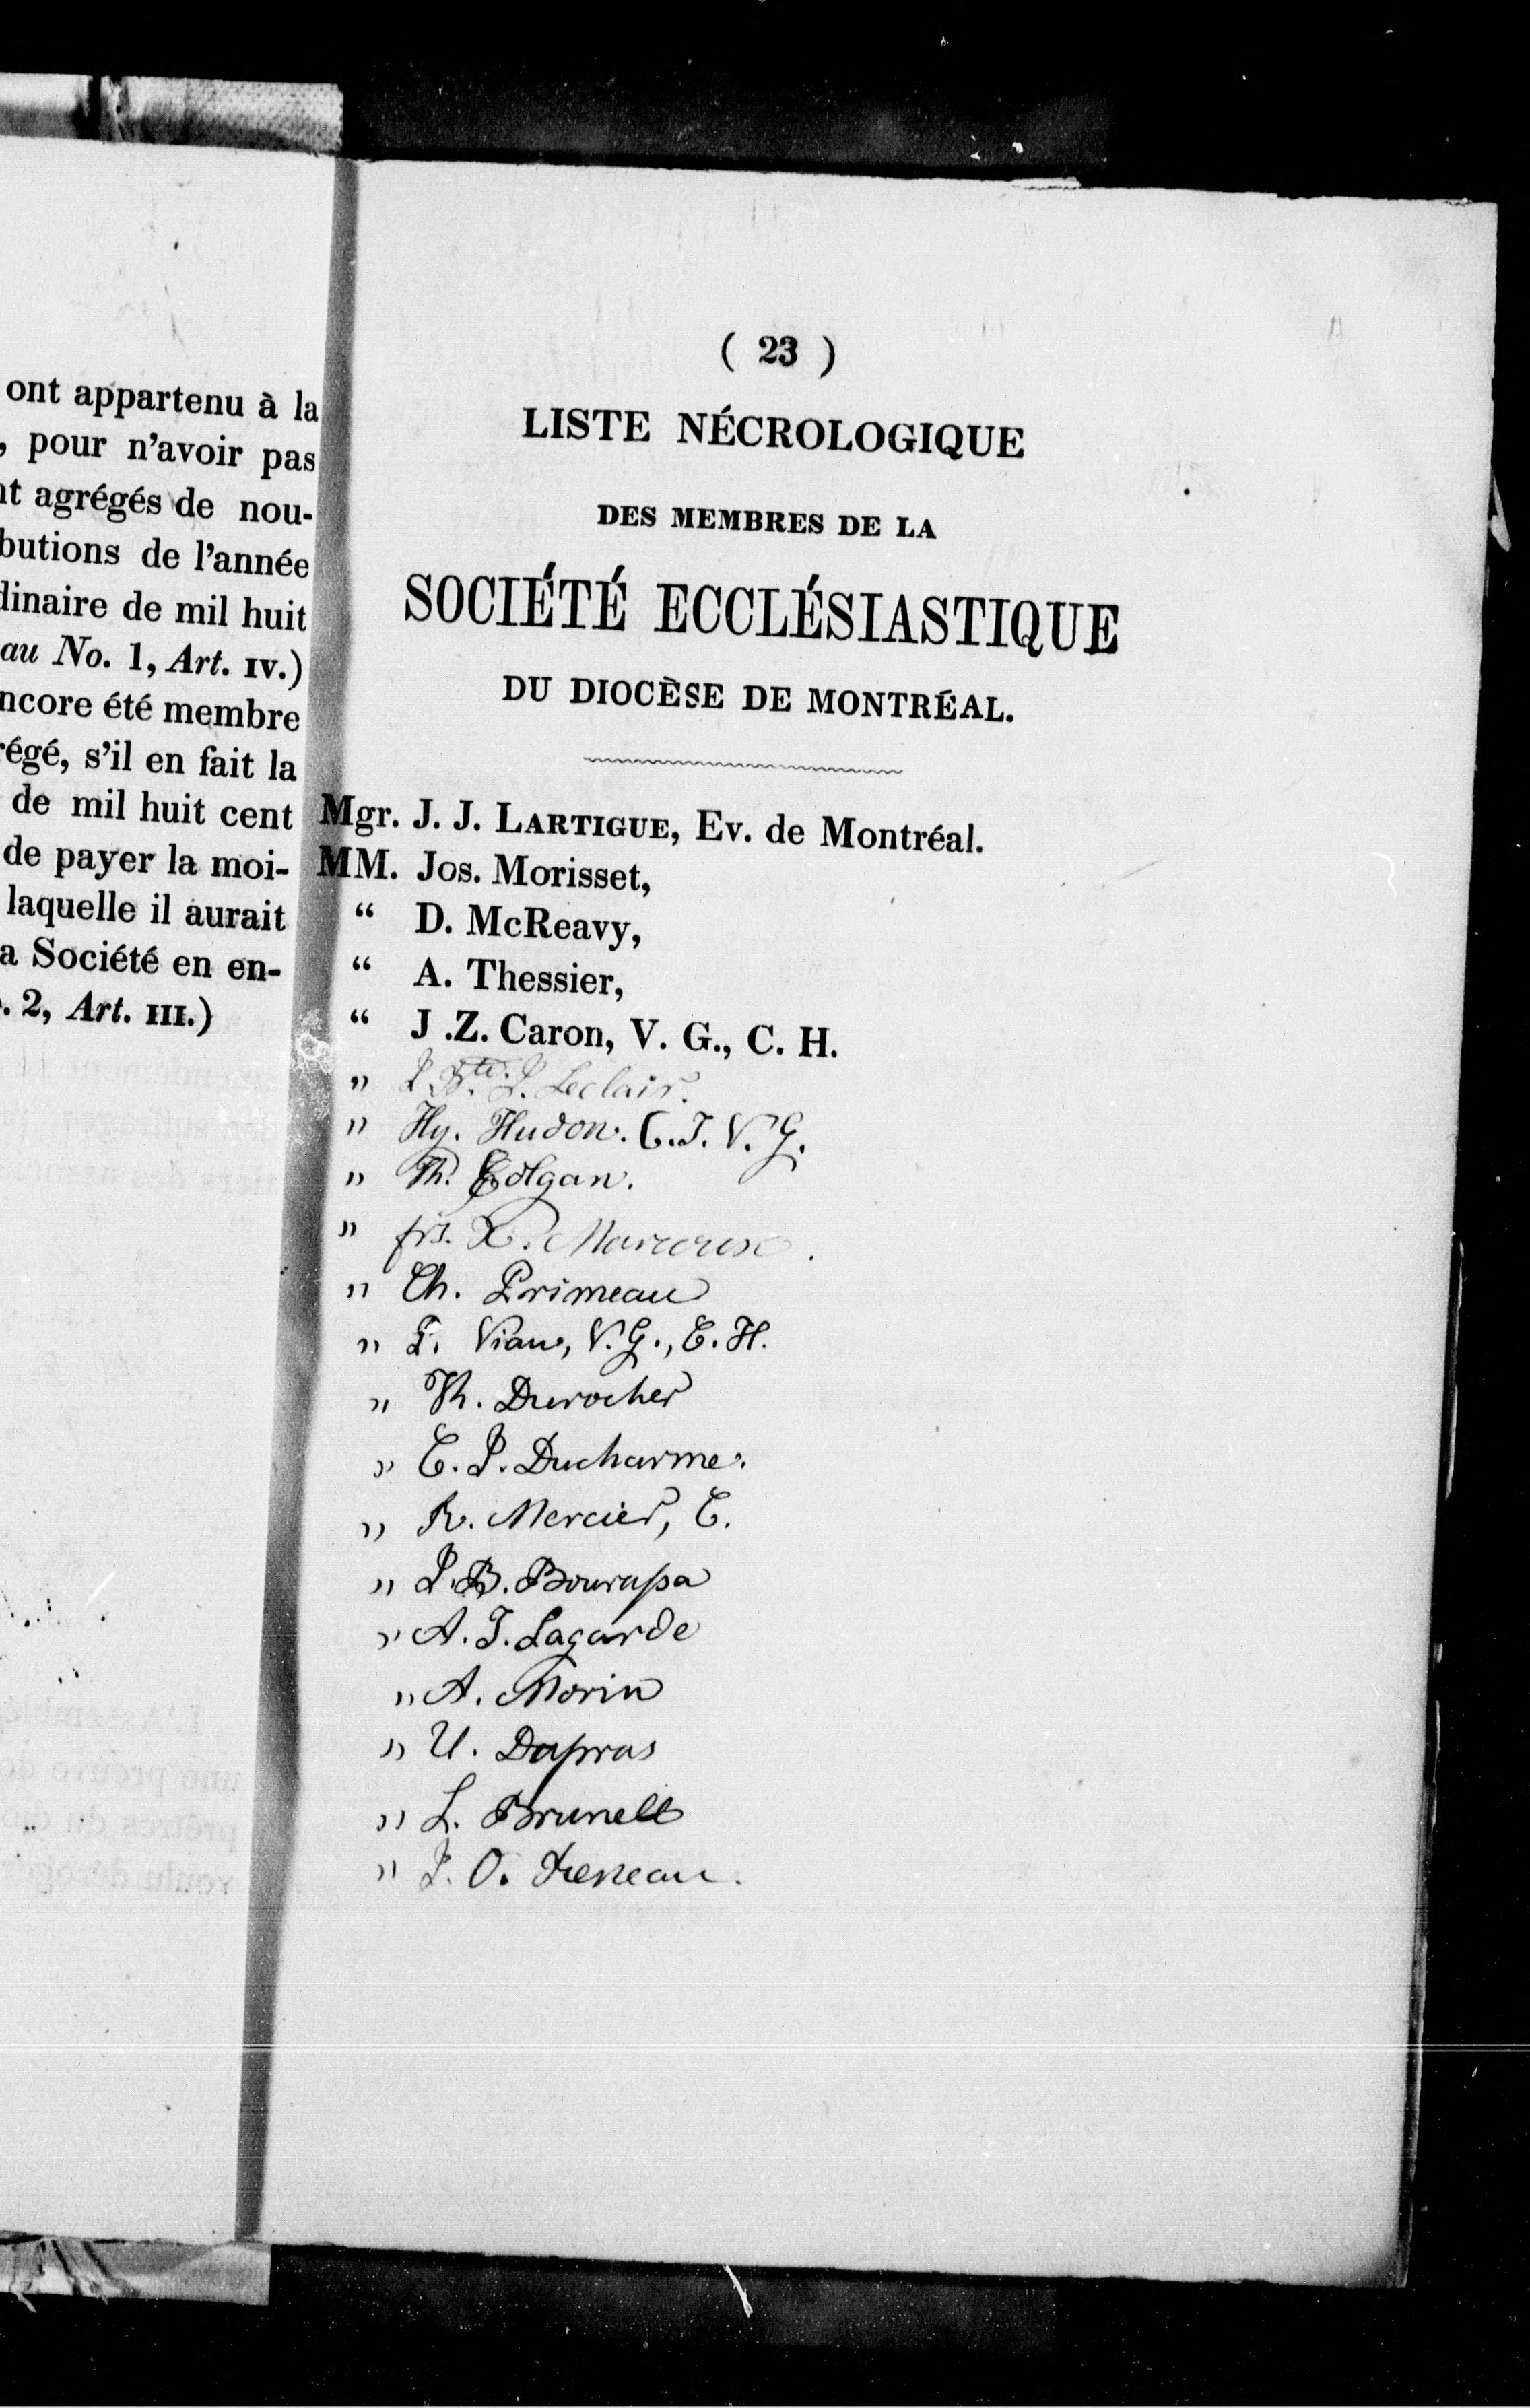 ont appartenu à la
, pour n'avoir pas
nt agrégés de nou-
butions de l'année
dinaire de mil huit
au No. 1, Art. IV.)
ncore été membre
régé, s'il en fait la
de mil huit cent
de payer la moi-
laquelle il aurait
a Société en en-
. 2, Art. III.)
( 23 )
LISTE NÉCROLOGIQUE
DES MEMBRES DE LA
SOCIÉTÉ ECCLÉSIASTIQUE
DU DIOCÈSE DE MONTRÉAL.
Mgr. J. J. LARTIGUE, Ev. de Montréal.
MM. Jos. Morisset,
“ D. McReavy,
“ A. Thessier,
“ J .Z. Caron, V. G., C. H.
" J. Bte. J. Leclair.
" Hy. Hudon. C. T. V. G.
" Th. Colgan.
" frs. X. Marcoux.
" Ch. Primeau
" P. Viau, V. G., C. H.
" Th. Durocher
" C. J. Ducharme.
" R. Mercier, C.
" J. B. Bourassa
" A. T. Lagarde
" A. Morin
" U. Dupras
" L. Brunell
" J. O.